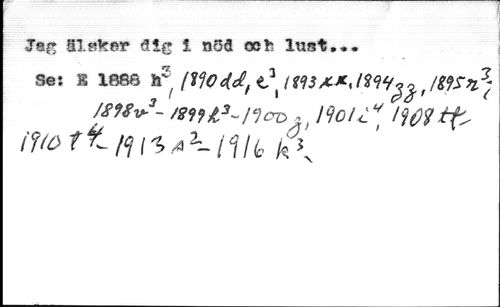 Jag älsker dig i nöd och lust...
Se: E 1888 h³, 1890dd, e³, 1893xx, 1894zz, 1895n³,
1898v³- 1899h³-1900z, 1901i⁴, 1908tt-
1910t⁴- 1913s²-1916k³